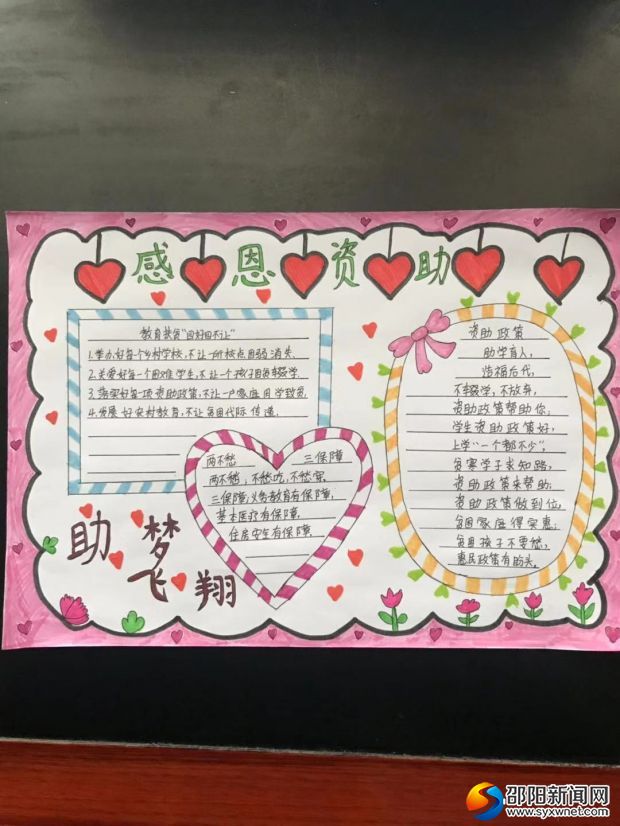 感恩资助
教育扶贫“四好四不让”
1.举办好每个乡村学校,不让一所校点因弱消失.
2.关爱好每个困难学生,不让一个孩子因贫辍学
3.落实好每一项资助政策,不让一户家庭因学致贫.
4.发展好农村教育,不让贫困代际传递.
两不愁 三保障
两不愁:不愁吃,不愁穿.
三保障:义务教育有保障,
基本医疗有保障,
住房安全有保障.
助梦
飞翔
资助政策
助学育人,
造福后代,
不辍学,不放弃,
资助政策帮助你;
学生资助政策好,
上学“一个都不少”,
贫寒学子求知路,
资助政策来帮助;
资助政策做到位,
贫困家庭得实惠;
贫困孩子不要愁,
惠民政策有盼头.
邵阳新闻网
www.syxwnet.com